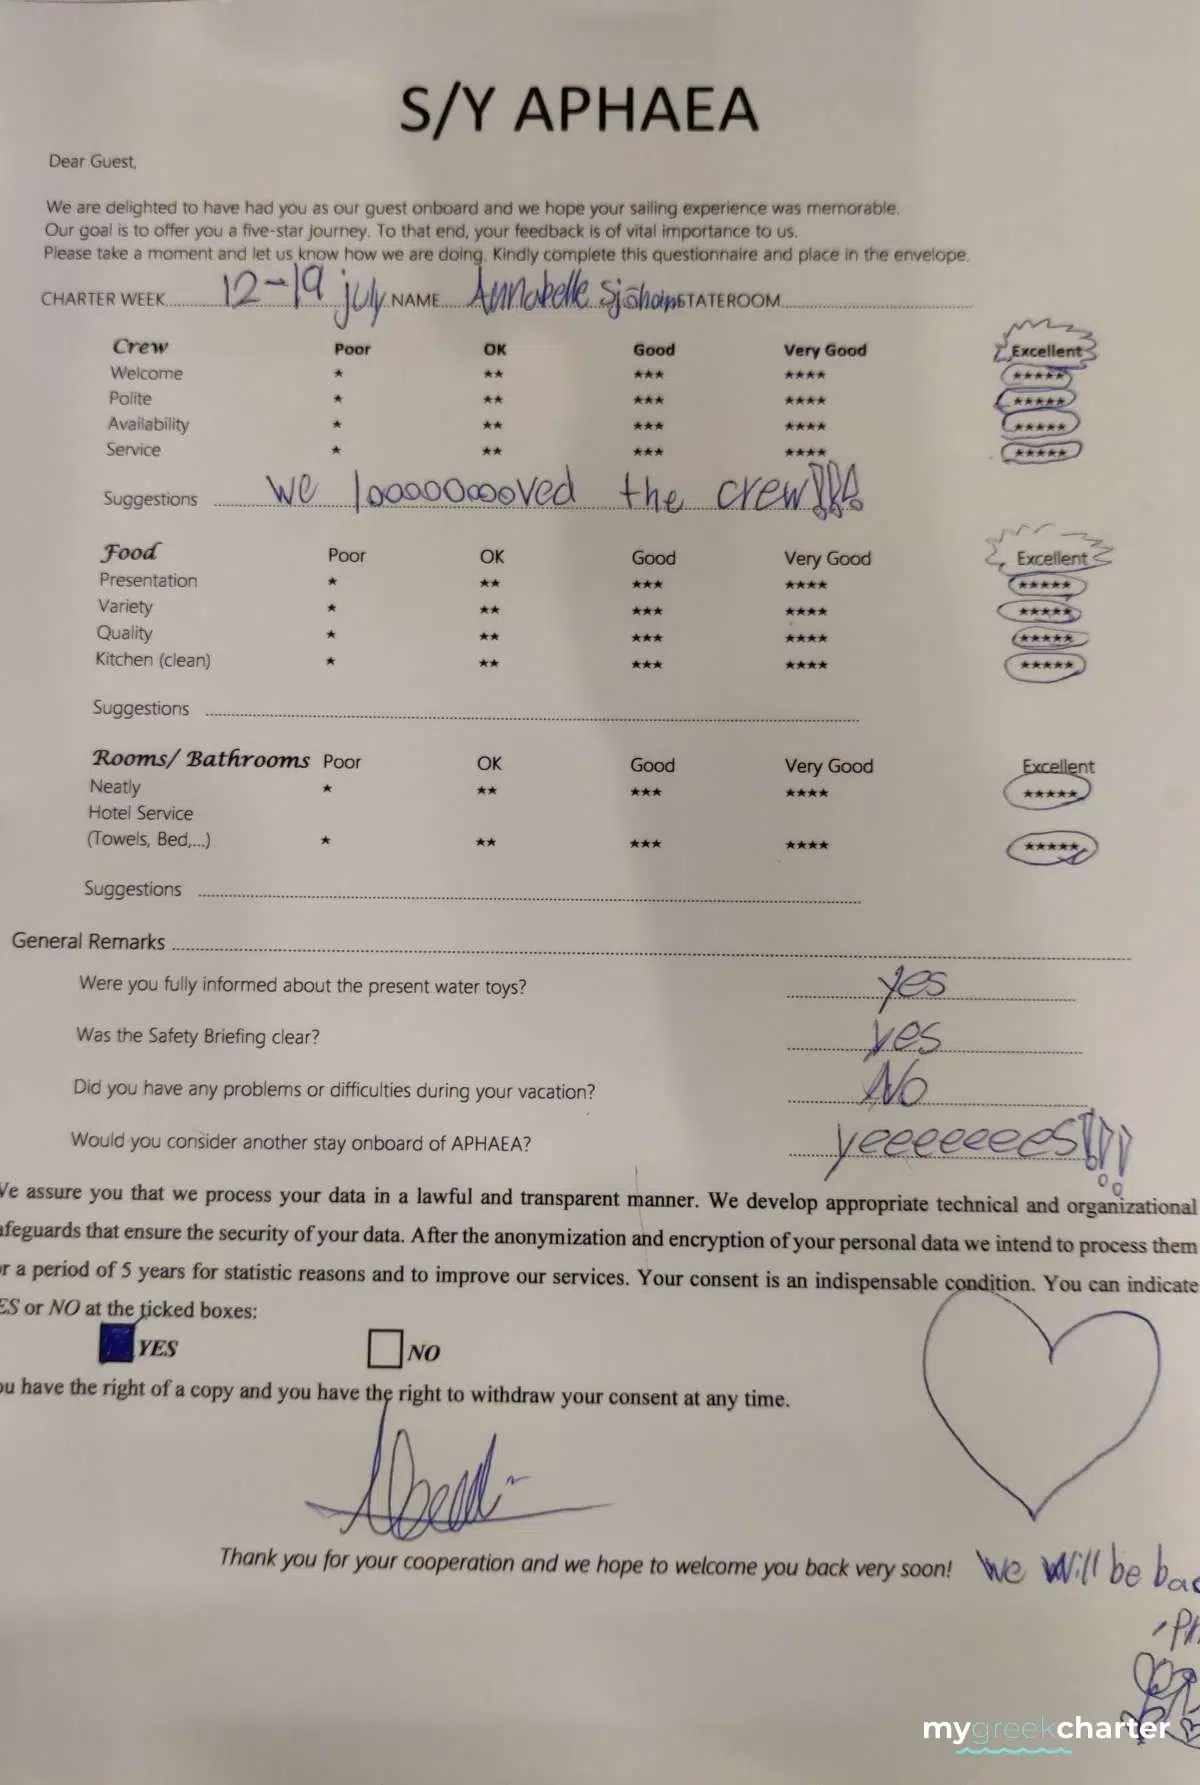 S/Y APHAEA
Dear Guest,
We are delighted to have had you as our guest onboard and we hope your sailing experience was memorable.
Our goal is to offer you a five-star journey. To that end, your feedback is of vital importance to us.
Please take a moment and let us know how we are doing. Kindly complete this questionnaire and place in the envelope.
CHARTER WEEK 12-19 july NAME Annabelle STATEROOM
Crew Poor OK Good Very Good Excellent
Welcome ★ ★★ ★★★ ★★★★ ★★★★★
Polite ★ ★★ ★★★ ★★★★ ★★★★★
Availability ★ ★★ ★★★ ★★★★ ★★★★★
Service ★ ★★ ★★★ ★★★★ ★★★★★
Suggestions we looooooooved the crew!!!
Food Poor OK Good Very Good Excellent
Presentation ★ ★★ ★★★ ★★★★ ★★★★★
Variety ★ ★★ ★★★ ★★★★ ★★★★★
Quality ★ ★★ ★★★ ★★★★ ★★★★★
Kitchen (clean) ★ ★★ ★★★ ★★★★ ★★★★★
Suggestions
Rooms/ Bathrooms Poor OK Good Very Good Excellent
Neatly ★ ★★ ★★★ ★★★★ ★★★★★
Hotel Service
(Towels, Bed,...) ★ ★★ ★★★ ★★★★ ★★★★★
Suggestions
General Remarks
Were you fully informed about the present water toys? yes
Was the Safety Briefing clear? yes
Did you have any problems or difficulties during your vacation? No
Would you consider another stay onboard of APHAEA? yeeeeeees!!!
We assure you that we process your data in a lawful and transparent manner. We develop appropriate technical and organizational
afeguards that ensure the security of your data. After the anonymization and encryption of your personal data we intend to process them
or a period of 5 years for statistic reasons and to improve our services. Your consent is an indispensable condition. You can indicate
ES or NO at the ticked boxes:
YES NO
ou have the right of a copy and you have the right to withdraw your consent at any time.
Thank you for your cooperation and we hope to welcome you back very soon! We will be bac
mygreekcharter